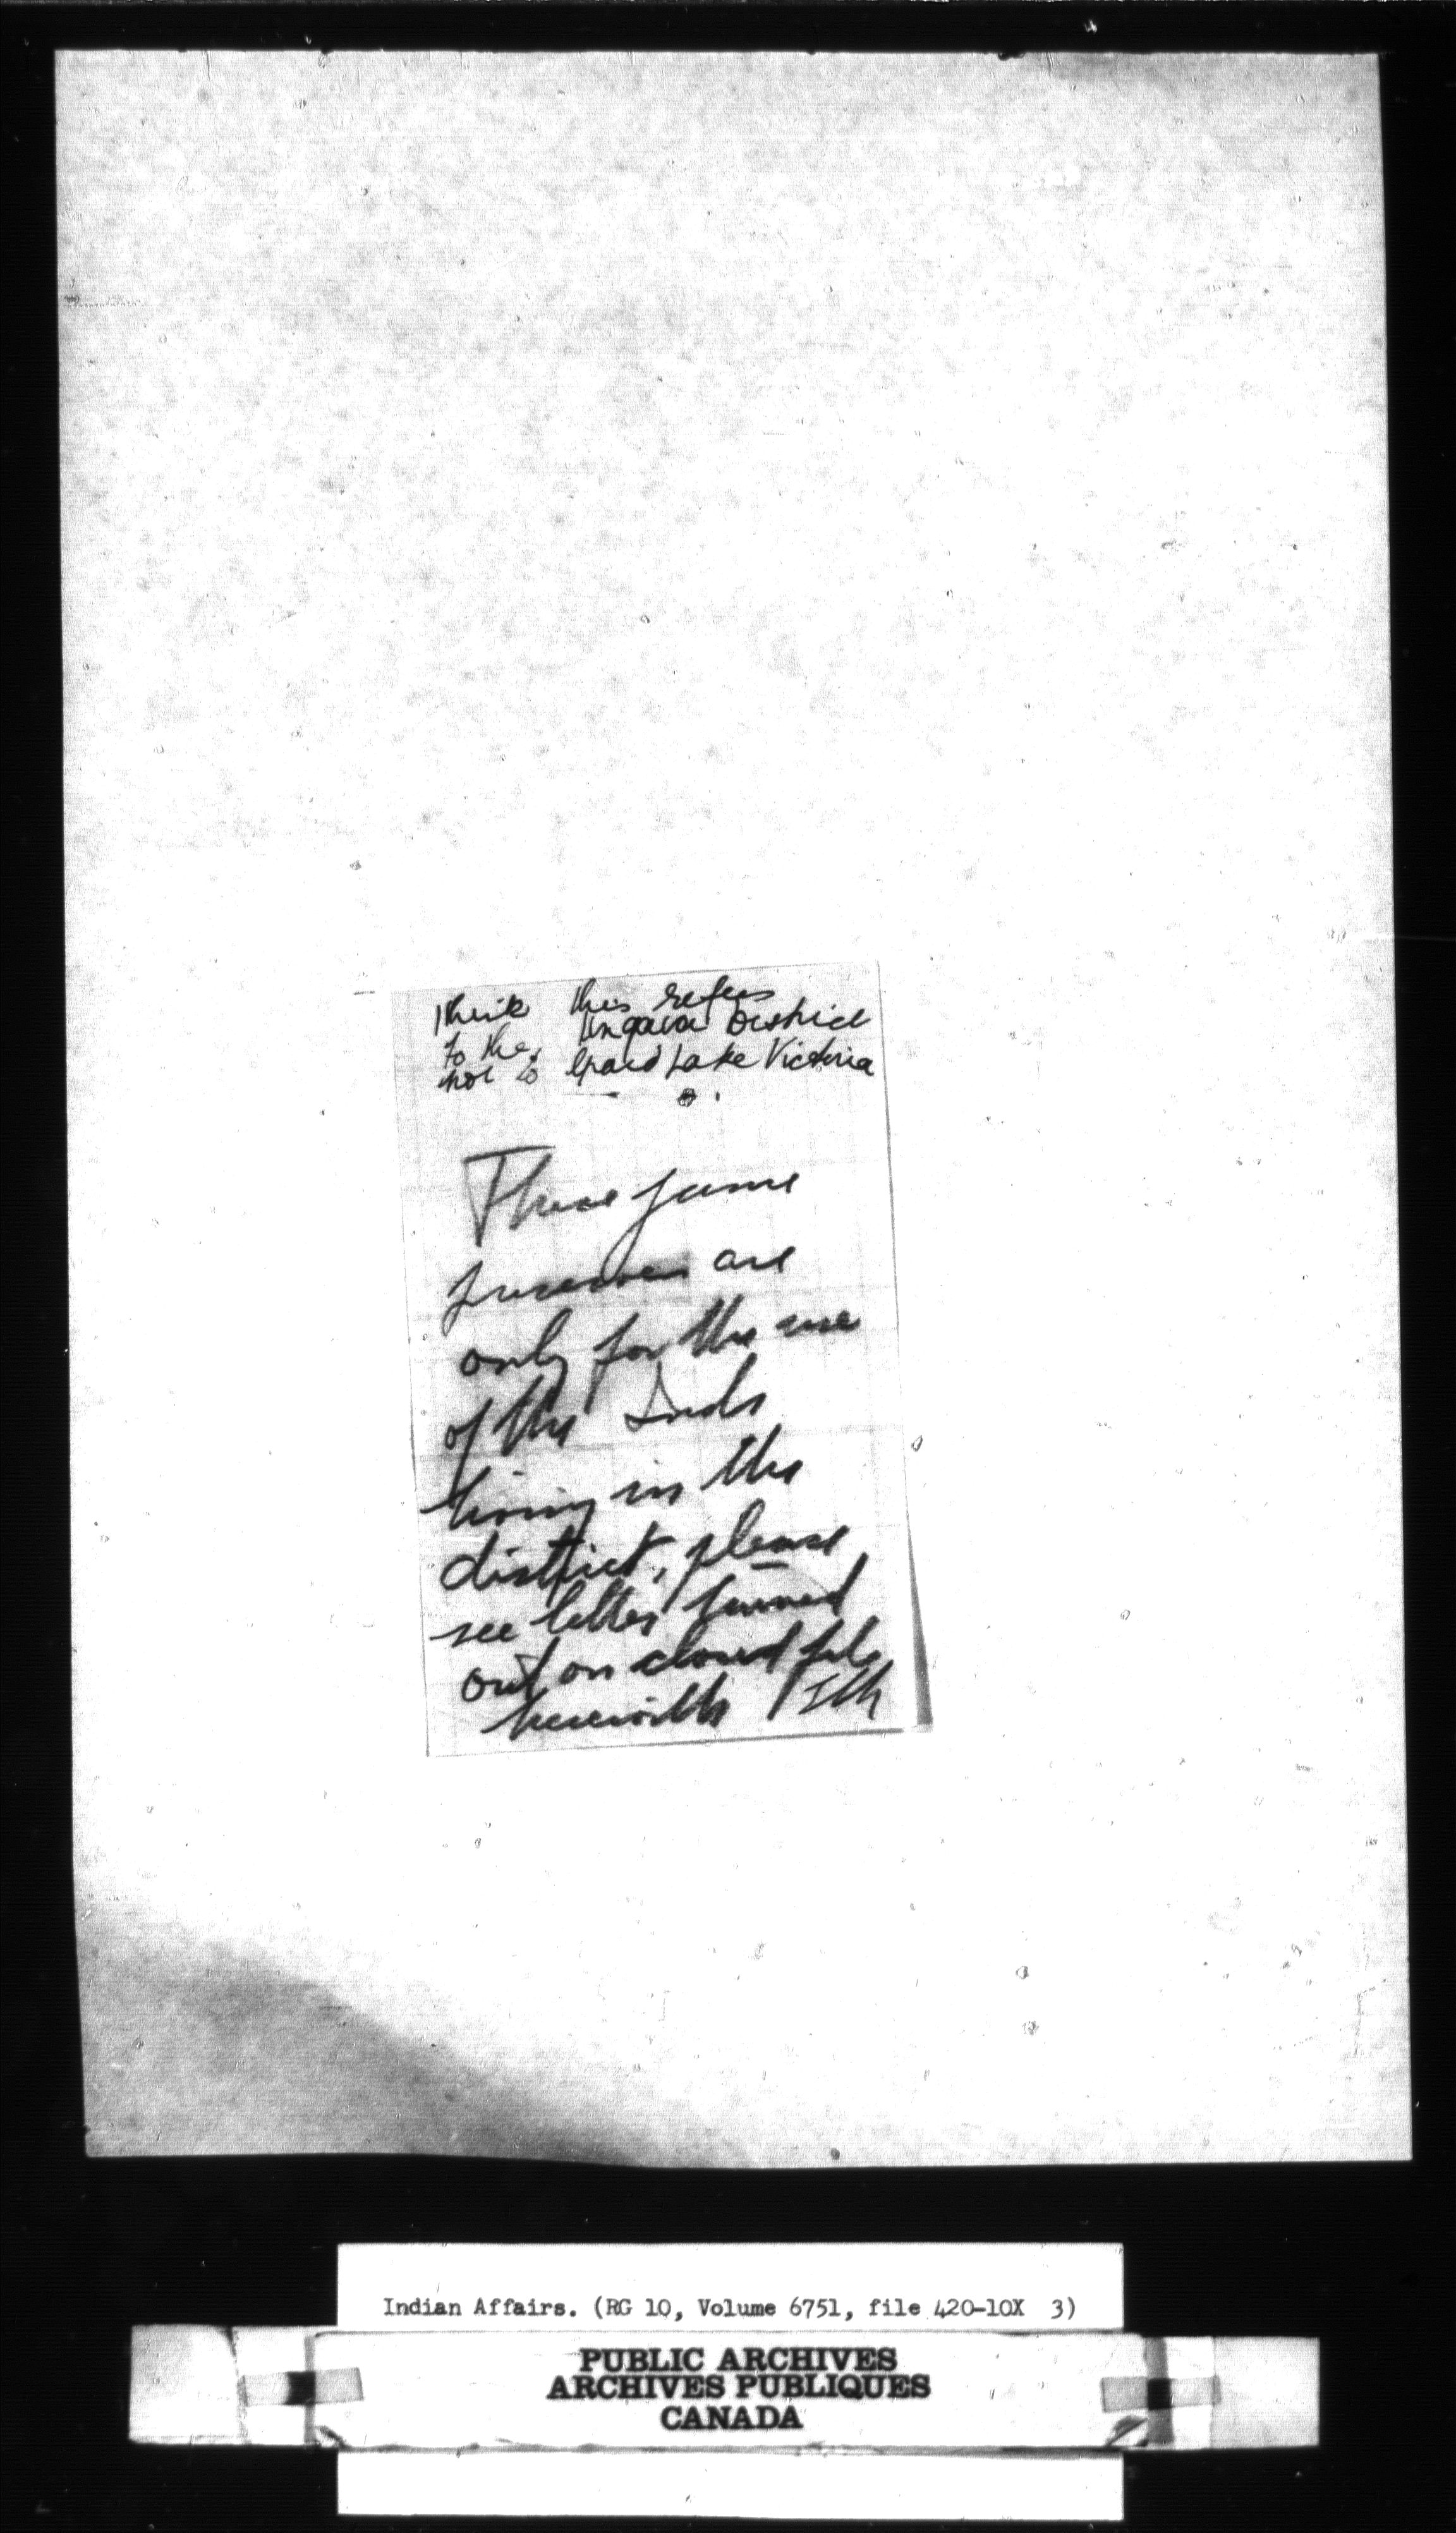 I think this refers
to the Ungava District
not to Grand Lake Victoria
These game
preserves are
only for the use
of the Inds
living in the
district, please
see letter turned
out on closed file
herewith
Indian Affairs. (RG 10, Volume 6751, file 420-10X 3)
PUBLIC ARCHIVES
ARCHIVES PUBLIQUES
CANADA